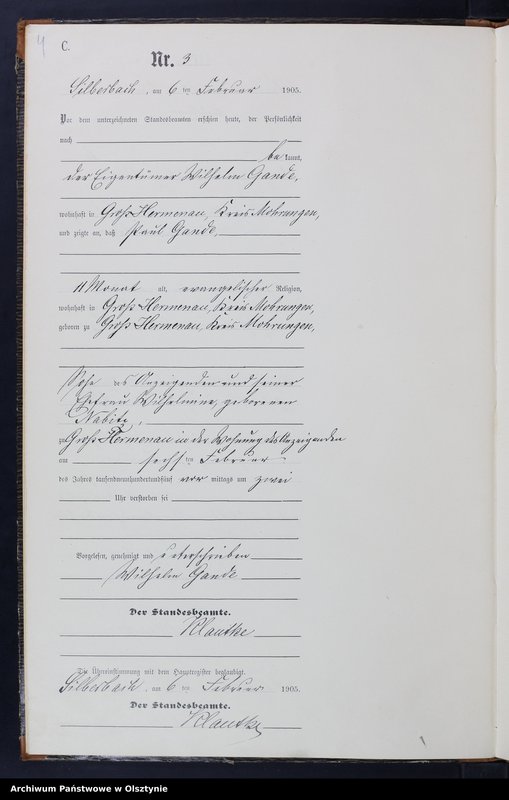 4
C.
Nr. 3
Silberbach, am 6 ten Februar 1905.
Vor dem unterzeichneten Standesbeamten erschien heute, der Persönlichkeit
nach
be kannt,
der Eigentümer Wilhelm Gande,
wohnhaft in Groß Hermenau, Kreis Mohrungen,
und zeigte an, daß Paul Gande,
11 Monat alt, evangelischer Religion,
wohnhaft in Groß Hermenau, Kreis Mohrungen,
geboren zu Groß Hermenau, Kreis Mohrungen,
Sohn des Anzeigenden und seiner
Ehefrau Wilhelmine, geborenen
Nabitz,
zu Groß Hermenau in der Wohnung des Anzeigenden
am sechs ten Februar
des Jahres tausendneunhundertundfünf vor mittags um zwei
Uhr verstorben sei
Vorgelesen, genehmigt und unterschrieben
Wilhelm Gande
Der Standesbeamte.
Klautke
Die Übereinstimmung mit dem Hauptregister beglaubigt.
Silberbach, am 6 ten Februar 1905.
Der Standesbeamte.
Klautke
Archiwum Państwowe w Olsztynie